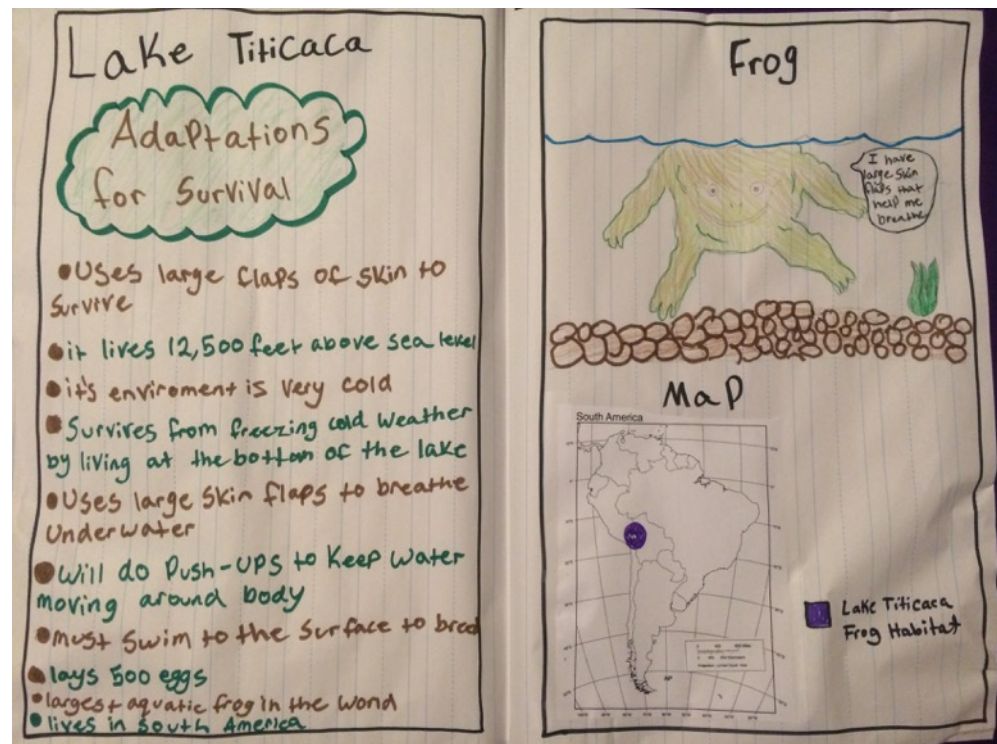 Lake Titicaca
Adaptations
for Survival
•Uses large flaps of skin to
survive
•it lives 12,500 feet above sea level
•it's enviroment is very cold
•Survives from freezing cold weather
by living at the bottom of the lake
•Uses large skin flaps to breathe
Underwater
•will do Push-ups to keep water
moving around body
•must swim to the surface to breed
•lays 500 eggs
•largest aquatic frog in the world
•lives in south America
Frog
I have
large skin
flaps that
help me
breathe
Map
South America
Lake Titicaca
Frog Habitat